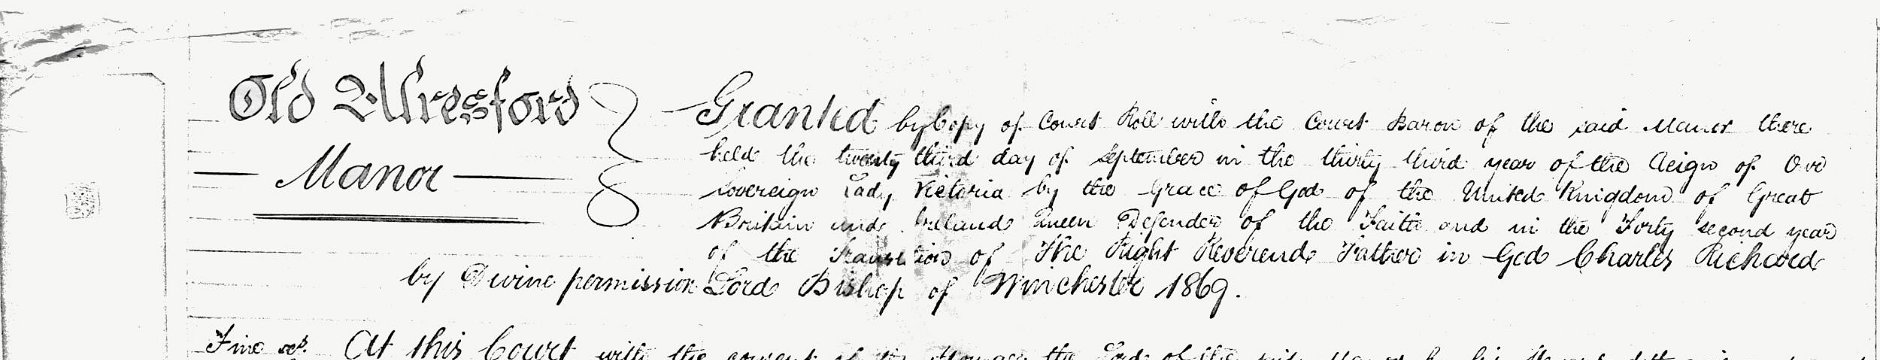 Old Alresford
Manor
Granted by Copy of Court Roll with the Court Baron of the said Manor there
held the twenty third day of September in the thirty third year of the Reign of Our
Sovereign Lady Victoria by the Grace of God of the United Kingdom of Great
Britain and Ireland Queen Defender of the Faith and in the Forty second year
of the Translation of The Right Reverend Father in God Charles Richard
by Divine permission Lord Bishop of Winchester 1869.
Fine At this Court with the consent of the the Lord of the said Manor by his